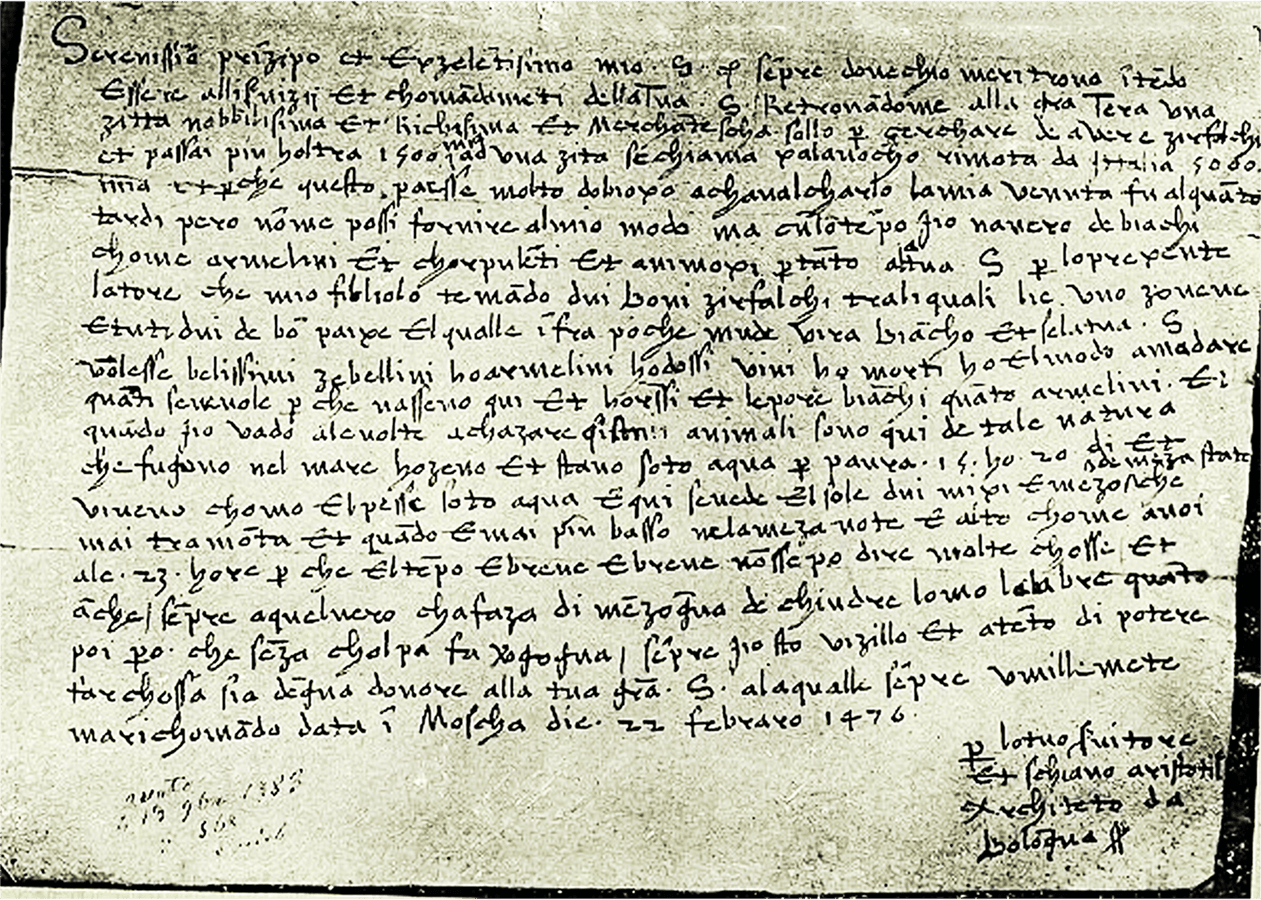 Serenissiō prīzipo et Exzelētisimo mio · S · ꝑ sēpre donechio mi ritrovo ītēdo
Essere alli s̄vizij Et chomādamēti della Tua · S · Retrovādome alla grā Tera una
zitta nobbilisima Et Richisima Et Merchātescha sollo ꝑ cerchare de avere zirfalchi
et passai piu holtra 1500 mia ad una zita se chiama xalauocho rimota da Ittalia 5000
mia et ꝑche questo paesse molto dobioxo achavalcharlo la mia venuta fu alquāto
tardi pero nōme possi fornire al mio modo ma cūlotēpo Jio navero de biāchi
chome armelini Et chorpulēti Et animoxi ꝑtāto alla tua · S · ꝑ lo prexente
latore che mio fibliolo te mādo dui boni zirfalchi trali quali lie uno zovene
Etuti dui de bō paixe El qualle īfra poche mude vira biācho Et se la tua · S ·
volesse belissimi zebellini ho armelini ho dossi vivi ho morti ho El modo amādare
quāti se ne vole ꝑ che nasseno qui Et horssi Et lepore biāchi quāto armelini · Et
quādo Jio vado ale volte achazare q̄sti animali sono qui de tale natura
che fugono nel mare hozeno Et stano soto aqua ꝑ paura · 15 · ho · 20 di Et
viveno chomo El pesse soto aqua E qui se vede El sole dui mixi E mezo de meza state che
mai tramōta Et quādo E mai piu basso nela meza note E alto chome a noi
ale · 23 · hore ꝑ che El tēpo E breve E breve nō sse po dire molte chosse Et
āche / sēpre a quel vero cha faza di mēzogna de chiudre lomo le labre quāto
poi ꝑo · che sēza cholpa fa vgogna / sēpre Jio sto vizillo Et atēto di potere
far chossa sia degna donore alla tua grā · S · ala qualle sēpre umillemēte
mi arichomādo data ī Moscha die · 22 febraro 1476 ·
ꝑ lo tuo s̄vitore
Et schiavo aristotil
Architeto da
Bologna